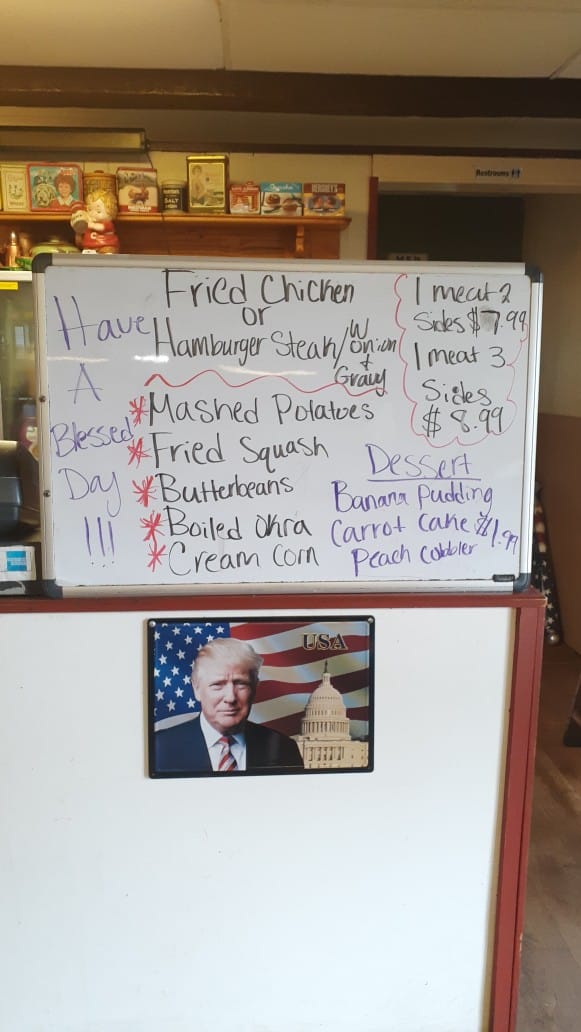 Restrooms
HERSHEY'S
Have
A
Blessed
Day
!!!
Fried Chicken
or
Hamburger Steak/W Onion
+
Gravy
*Mashed Potatoes
*Fried Squash
*Butterbeans
*Boiled Okra
*Cream Corn
1 meat 2
Sides $7.99
1 meat 3
Sides
$8.99
Dessert
Banana Pudding
Carrot Cake $1.99
Peach Cobbler
USA